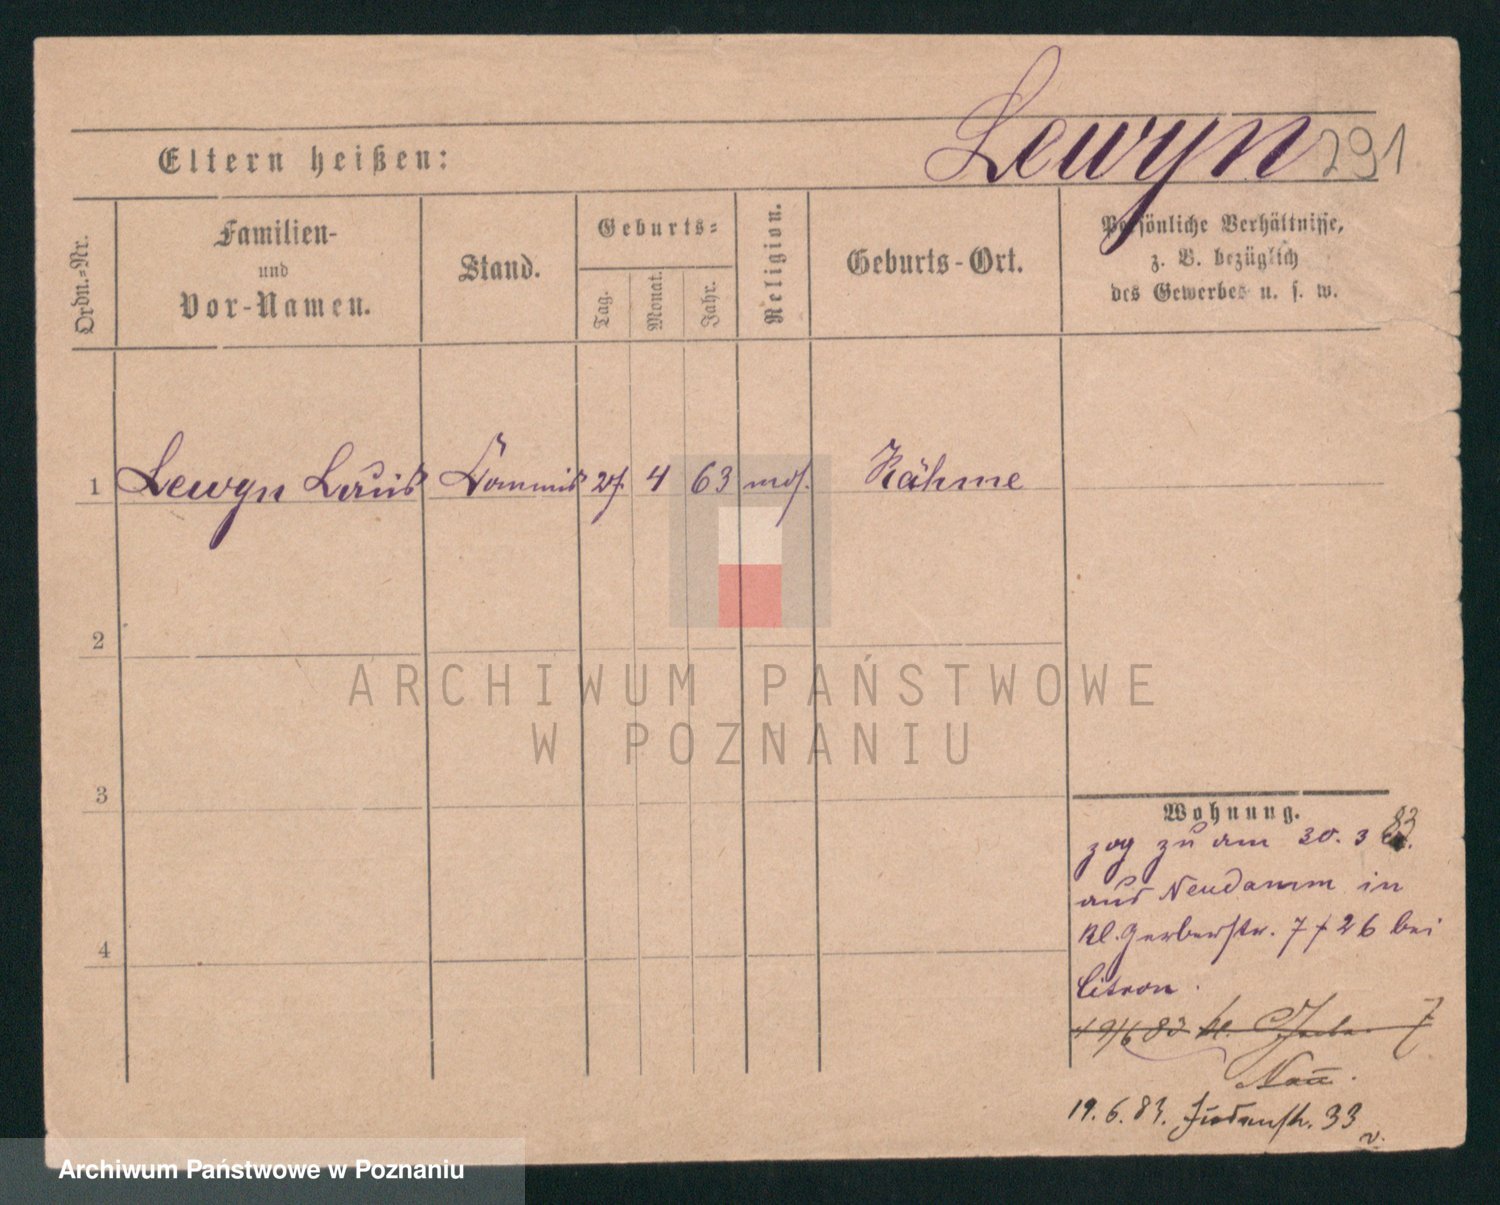 Lewyn 291
Eltern heißen:
Ordn.-Nr.
Familien-
und
Vor-Namen.
Stand.
Geburts-
Tag.
Monat.
Jahr.
Religion.
Geburts-Ort.
Persönliche Verhältnisse,
z. B. bezüglich
des Gewerbes u. s. w.
1 Lewyn Louis Commis 27. 4 63 mos. Kähme
2
3
4
Wohnung.
zog zu am 30. 3 83
aus Neudamm in
Kl. Gerberstr. 7 26 bei
Citron.
19/6 83 kl. 7
19. 6. 83. Judenstr. 33
v.
ARCHIWUM PAŃSTWOWE
W POZNANIU
Archiwum Państwowe w Poznaniu